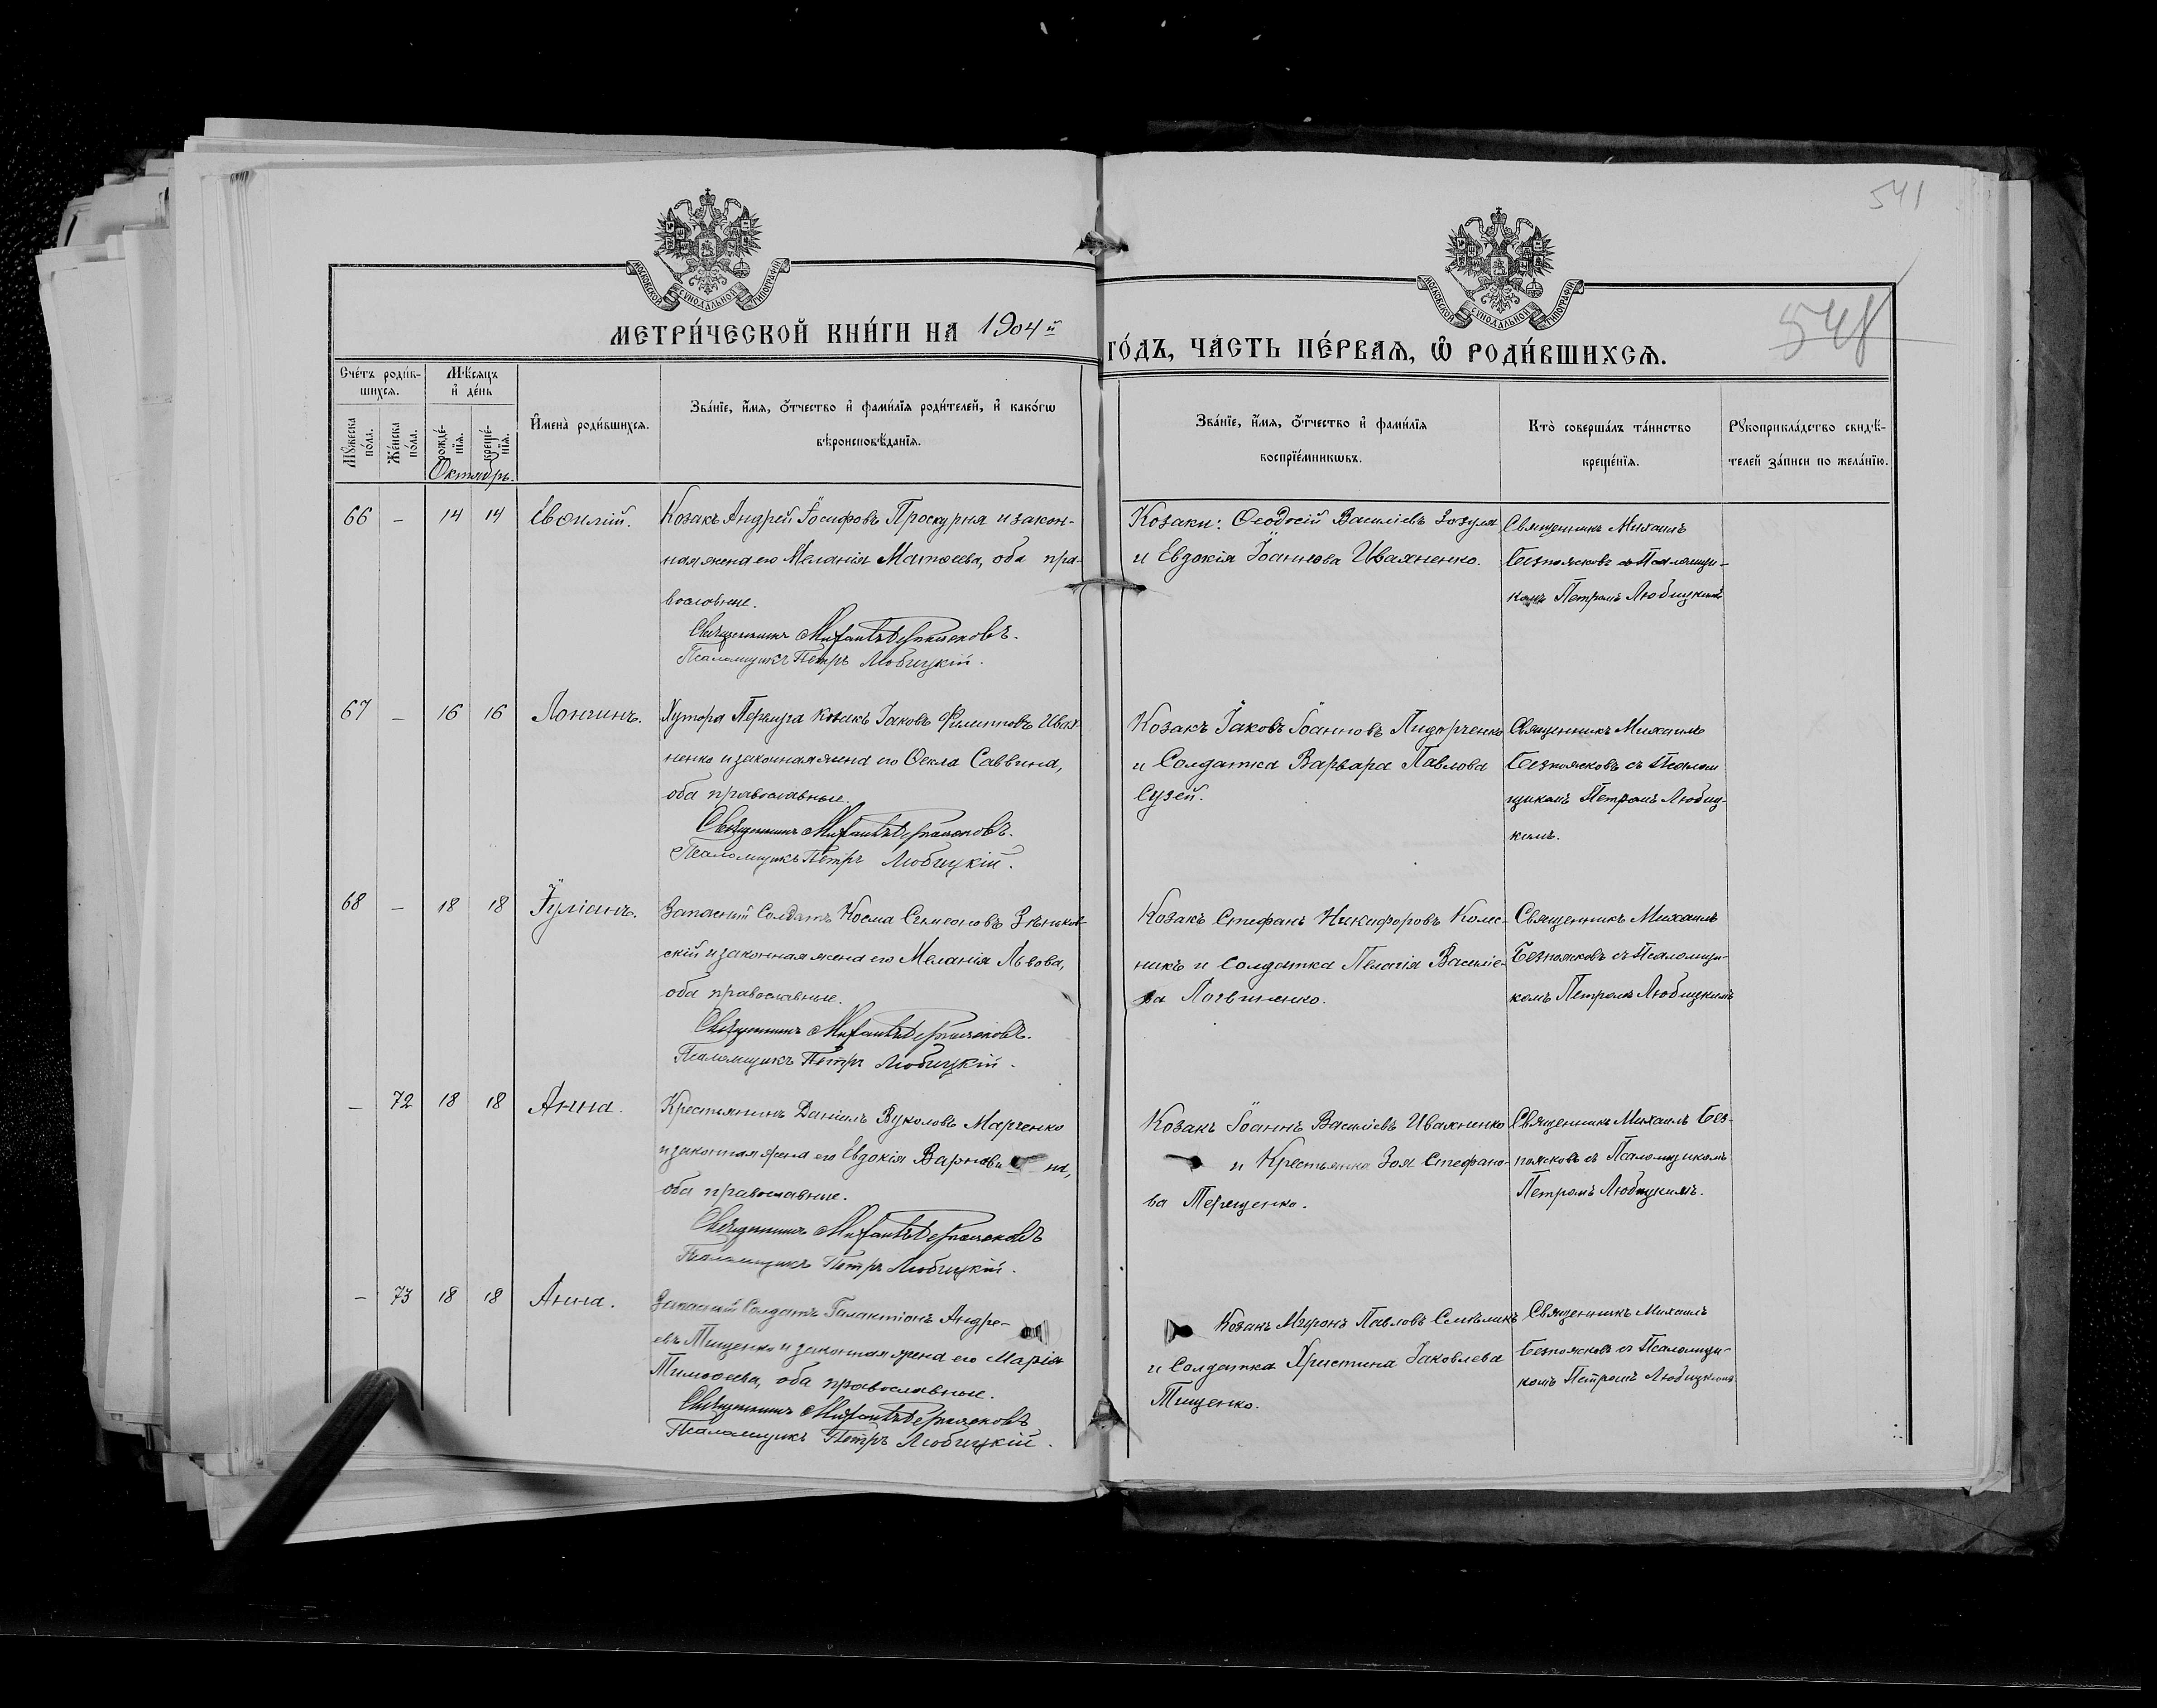 541
548
МОСКОВСКОЙ СѴНОДАЛЬНОЙ ТИПОГРАФІИ
МОСКОВСКОЙ СѴНОДАЛЬНОЙ ТИПОГРАФІИ
МЕТРИ́ЧЕСКОЙ КНИ́ГИ НА 1904й
ГО́ДЪ, ЧА́СТЬ ПЕ́РВАѦ, Ѿ РОДИ́ВШИХСѦ.
Сче́тъ роди́в-
шихсѧ.
Мѣ́сѧцъ
и҆ де́нь
Мꙋ́жеска
по́ла.
Же́нска
по́ла.
рожде́-
нїѧ.
креще́-
нїѧ.
Октябрь.
И҆мена̀ роди́вшихсѧ.
Зва́нїе, и҆́мѧ, ѻ҆́тчество и҆ фами́лїѧ роди́телей, и҆ како́гѡ
вѣроисповѣ́данїѧ.
Зва́нїе, и҆́мѧ, ѻ҆́тчество и҆ фами́лїѧ
воспрїе́мникѡвъ.
Кто̀ соверша́лъ та́инство
креще́нїѧ.
Рꙋкоприкла́дство свидѣ́-
телей за́писи по жела́нїю.
66 – 14 14 Евѳилій.
Козакъ Андрей Іосифовъ Проскурня и закон-
ная жена его Меланія Матѳеева, оба пра-
вославные.
Священникъ Михаилъ Безпоясковъ.
Псаломщикъ Петръ Любицкій.
Козаки: Ѳеодосій Василіевъ Зозуля
и Евдокія Іоаннова Ивахненко.
Священникъ Михаилъ
Безпоясковъ съ Псаломщи-
комъ Петромъ Любицкимъ
67 – 16 16 Лонгинъ.
Хутора Перѣуга козакъ Іаковъ Филипповъ Ивах-
ненко и законная жена его Ѳекла Саввина,
оба православные.
Священникъ Михаилъ Безпоясковъ.
Псаломщикъ Петръ Любицкій.
Козакъ Іаковъ Іоанновъ Пидорченко
и Солдатка Варвара Павлова
Сузей.
Священникъ Михаилъ
Безпоясковъ съ Псалом
щикомъ Петромъ Любиц-
кимъ.
68 – 18 18 Іуліанъ.
Запасный Солдатъ Косма Симеоновъ Зѣньков-
скій и законная жена его Меланія Львова,
оба православные.
Священникъ Михаилъ Безпоясковъ.
Псаломщикъ Петръ Любицкій.
Козакъ Стефанъ Никифоровъ Колес-
никъ и Солдатка Пелагія Василіе-
ва Логвиненко.
Священникъ Михаилъ
Безпоясковъ съ Псаломщи-
комъ Петромъ Любицкимъ
– 72 18 18 Анна.
Крестьянинъ Даніилъ Вуколовъ Марченко
и законная жена его Евдокія Варнавина,
оба православные.
Священникъ Михаилъ Безпоясковъ
Псаломщикъ Петръ Любицкій.
Козакъ Іоаннъ Василіевъ Ивахненко
и Крестьянка Зоя Стефано-
ва Терещенко.
Священникъ Михаилъ Без-
поясковъ съ Псаломщикомъ
Петромъ Любицкимъ.
– 73 18 18 Анна.
Запасный Солдатъ Галактіонъ Андре-
евъ Тищенко и законная жена его Марія
Тимоѳеева, оба православные.
Священникъ Михаилъ Безпоясковъ
Псаломщикъ Петръ Любицкій.
Козакъ Миронъ Павловъ
и Солдатка Христина Іаковлева
Тищенко.
Священникъ Михаилъ
Безпоясковъ съ Псаломщи-
комъ Петромъ Любицкимъ